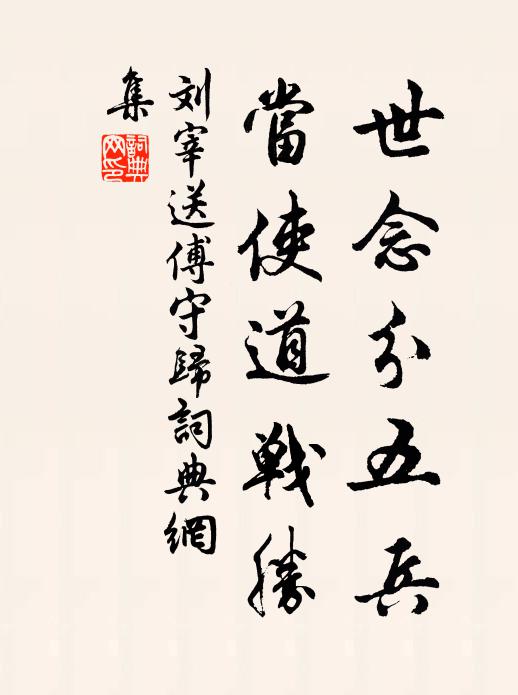 世念分五兵
當使道戰勝
刘宰送傅守歸詞典網
集
詞典
网印